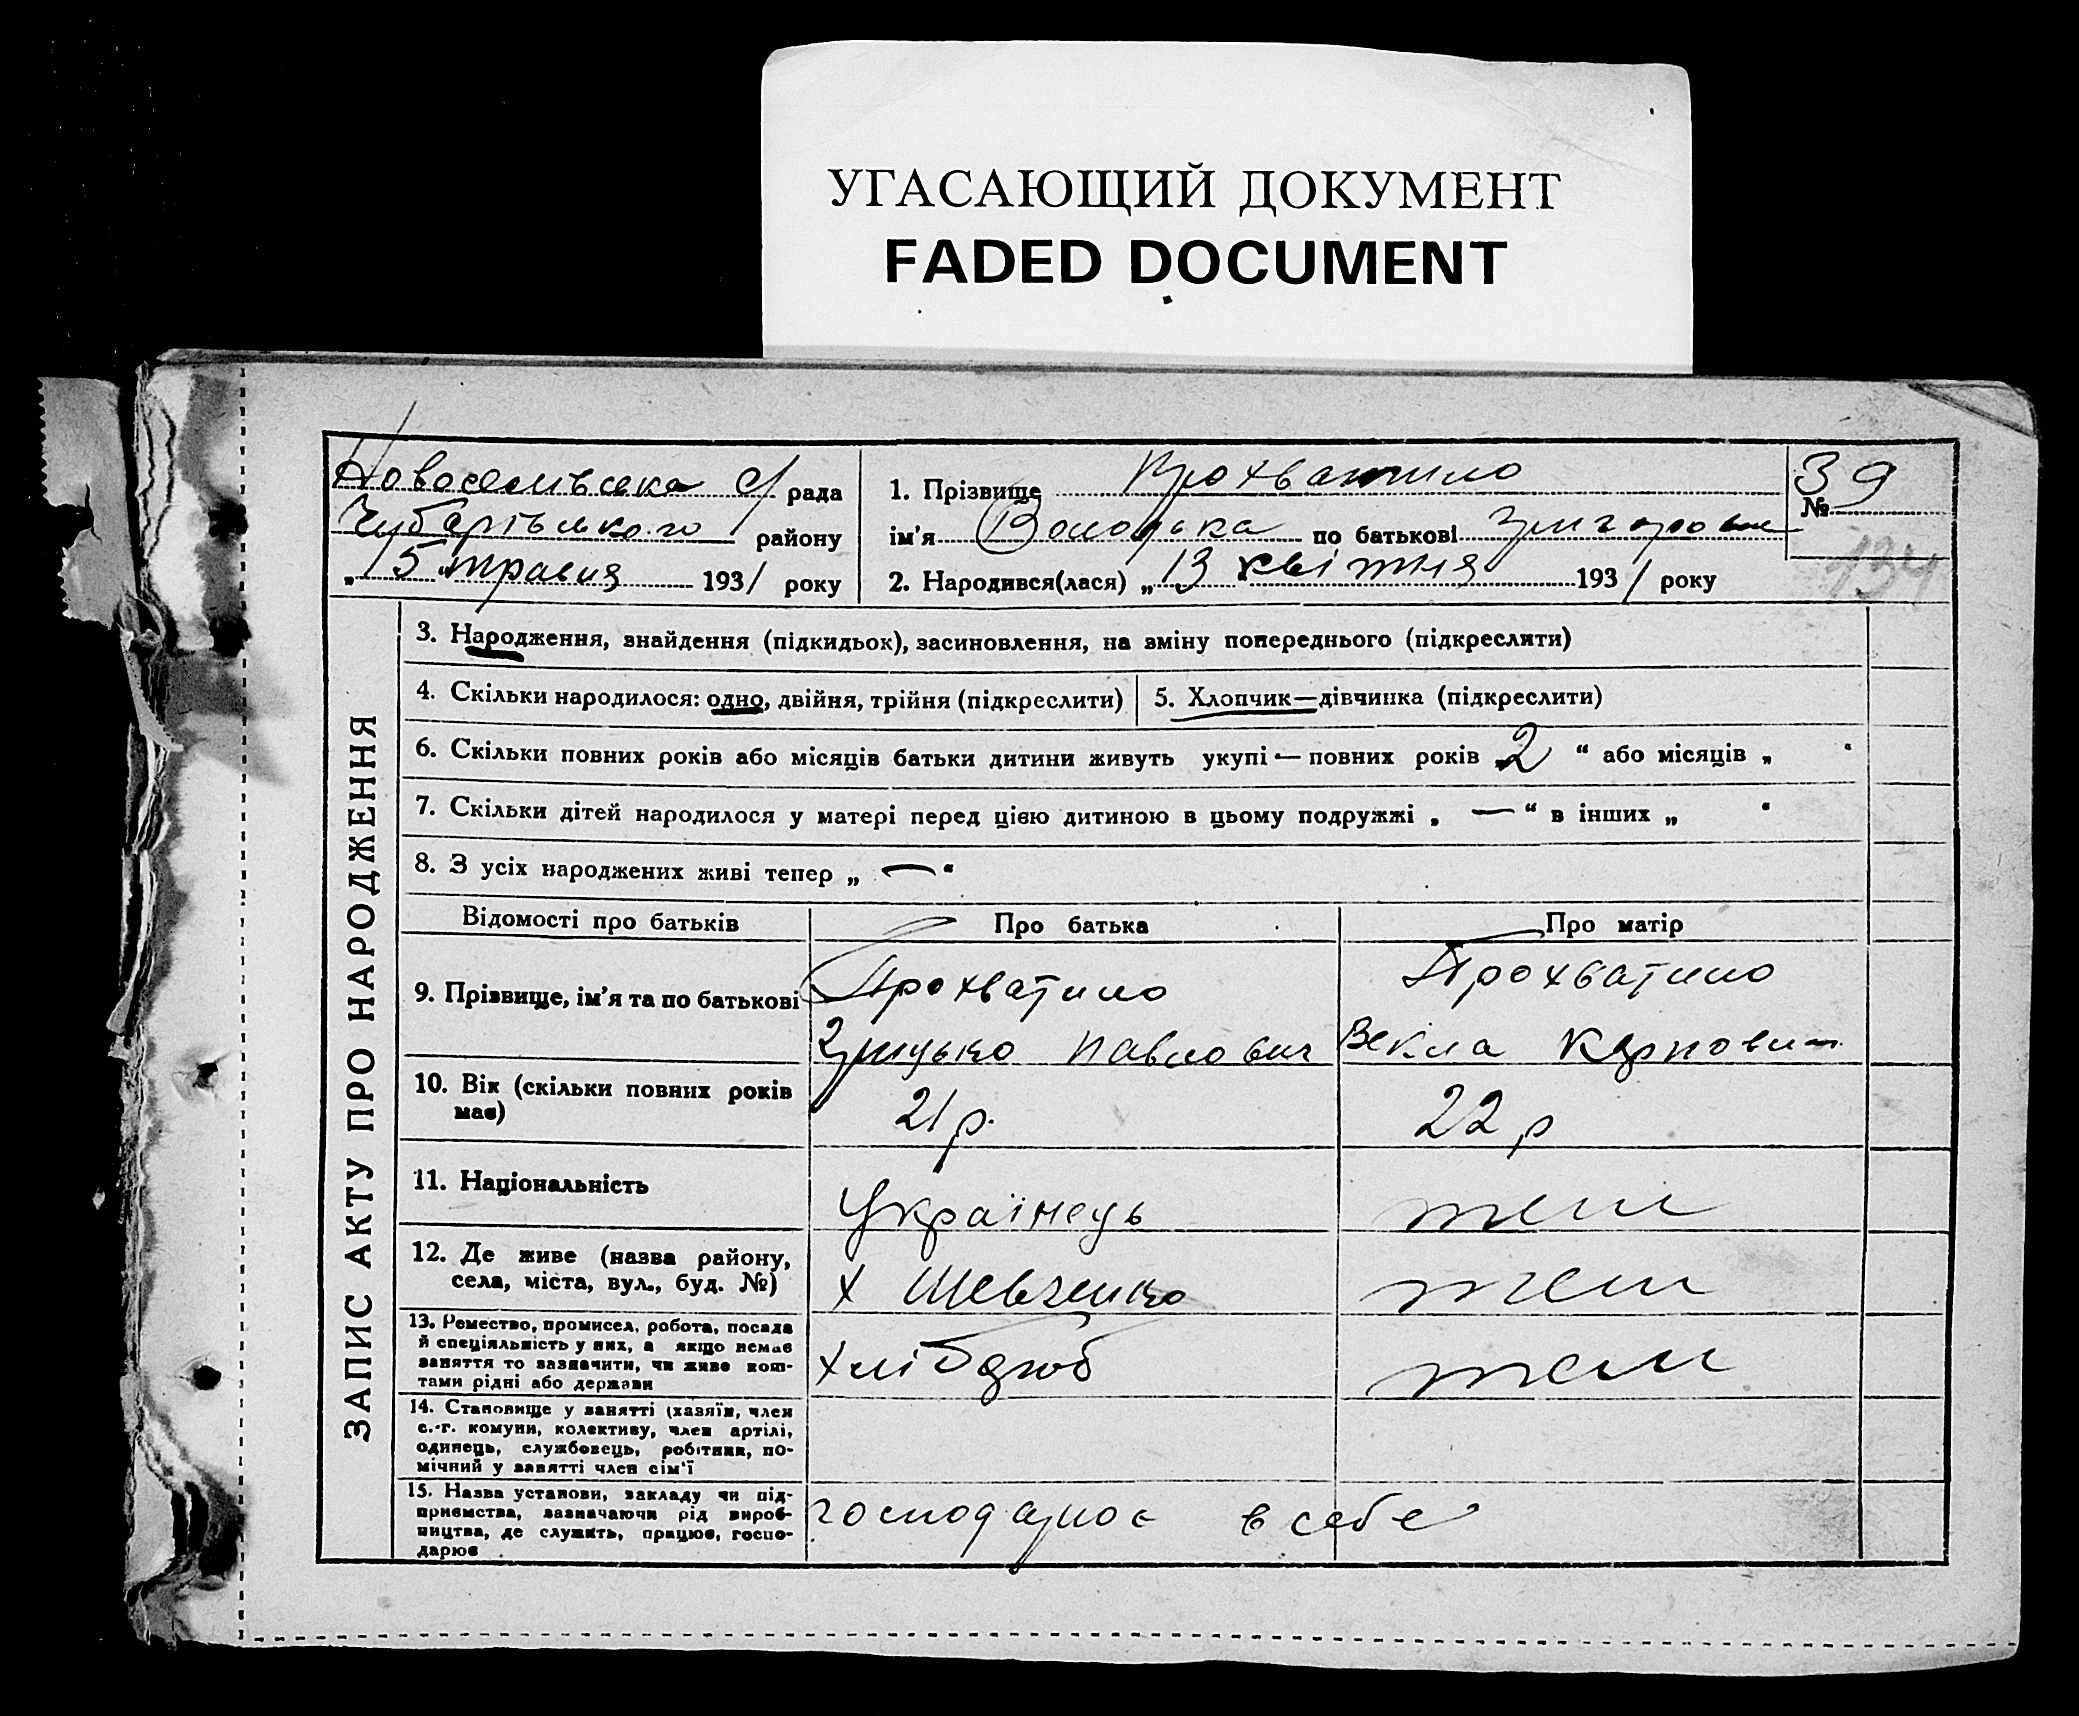 УГАСАЮЩИЙ ДОКУМЕНТ
FADED DOCUMENT
Новоселивська с/рада
Чубарівського району
„15“ травня 1931 року
1. Прізвище Прохватило
ім'я по батькові
2. Народився(лася) „13 квітня 1931 року
№ 39
134
ЗАПИС АКТУ ПРО НАРОДЖЕННЯ
3. Народження, знайдення (підкидьок), засиновлення, на зміну попереднього (підкреслити)
4. Скільки народилося: одно, двійня, трійня (підкреслити)
5. Хлопчик—дівчинка (підкреслити)
6. Скільки повних років або місяців батьки дитини живуть укупі — повних років „2“ або місяців „ “
7. Скільки дітей народилося у матері перед цією дитиною в цьому подружжі „ — “ в інших „ “
8. З усіх народжених живі тепер „ — “
Відомості про батьків
Про батька
Про матір
9. Прізвище, ім'я та по батькові
Прохватило
Грицько Павлович
Прохватило
Векла Карповна
10. Вік (скільки повних років
має)
21 р.
22 р
11. Національність
Українець
теж
12. Де живе (назва району,
села, міста, вул., буд. №)
х Шевченко
теж
13. Ремество, промисел, робота, посада
й спеціяльність у них, а якщо немає
заняття то зазначити, чи живе кош-
тами рідні або держави
хлібороб
теж
14. Становище у занятті (хазяїн, член
с.-г. комуни, колективу, член артілі,
одинець, службовець, робітник, по-
мічний у занятті член сім'ї
15. Назва установи, закладу чи під-
приємства, зазначаючи рід вироб-
ництва, де служить, працює, госпо-
дарює
господарює в себе